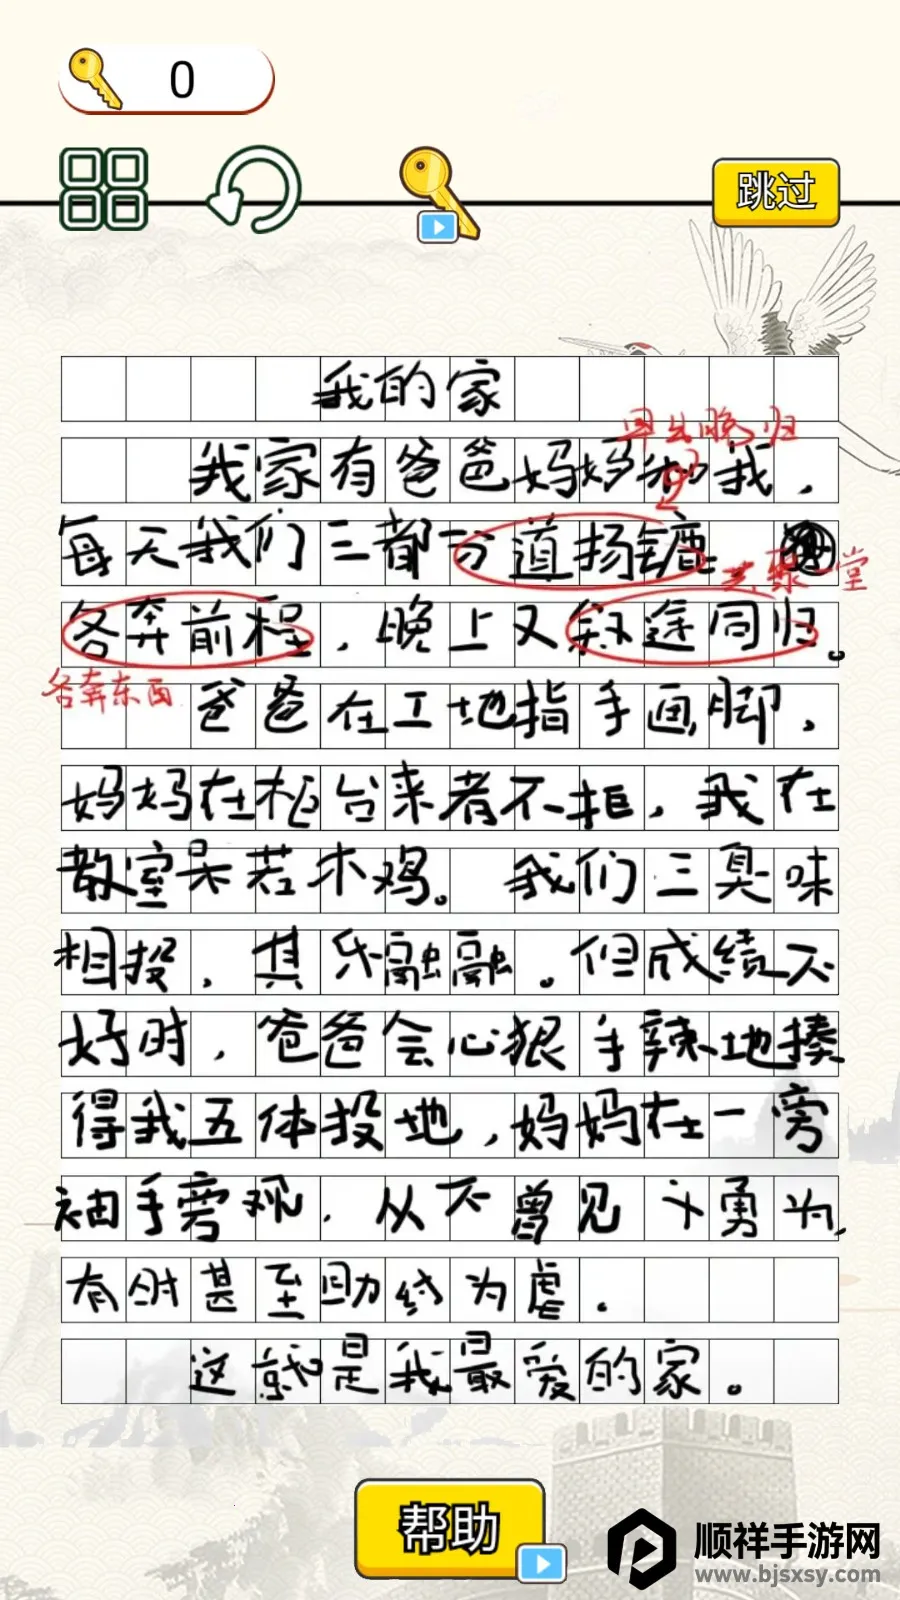 0
跳过
我的家
早出晚归
我家有爸爸妈妈和我，
每天我们三都分道扬镳
共聚一堂
各奔前程，晚上又殊途同归。
各奔东西
爸爸在工地指手画脚，
妈妈在柜台来者不拒，我在
教室呆若木鸡。我们三臭味
相投，其乐融融。但成绩不
好时，爸爸会心狠手辣地揍
得我五体投地，妈妈在一旁
袖手旁观，从不曾见义勇为，
有时甚至助纣为虐。
这就是我最爱的家。
帮助
顺祥手游网
www.bjsxsy.com